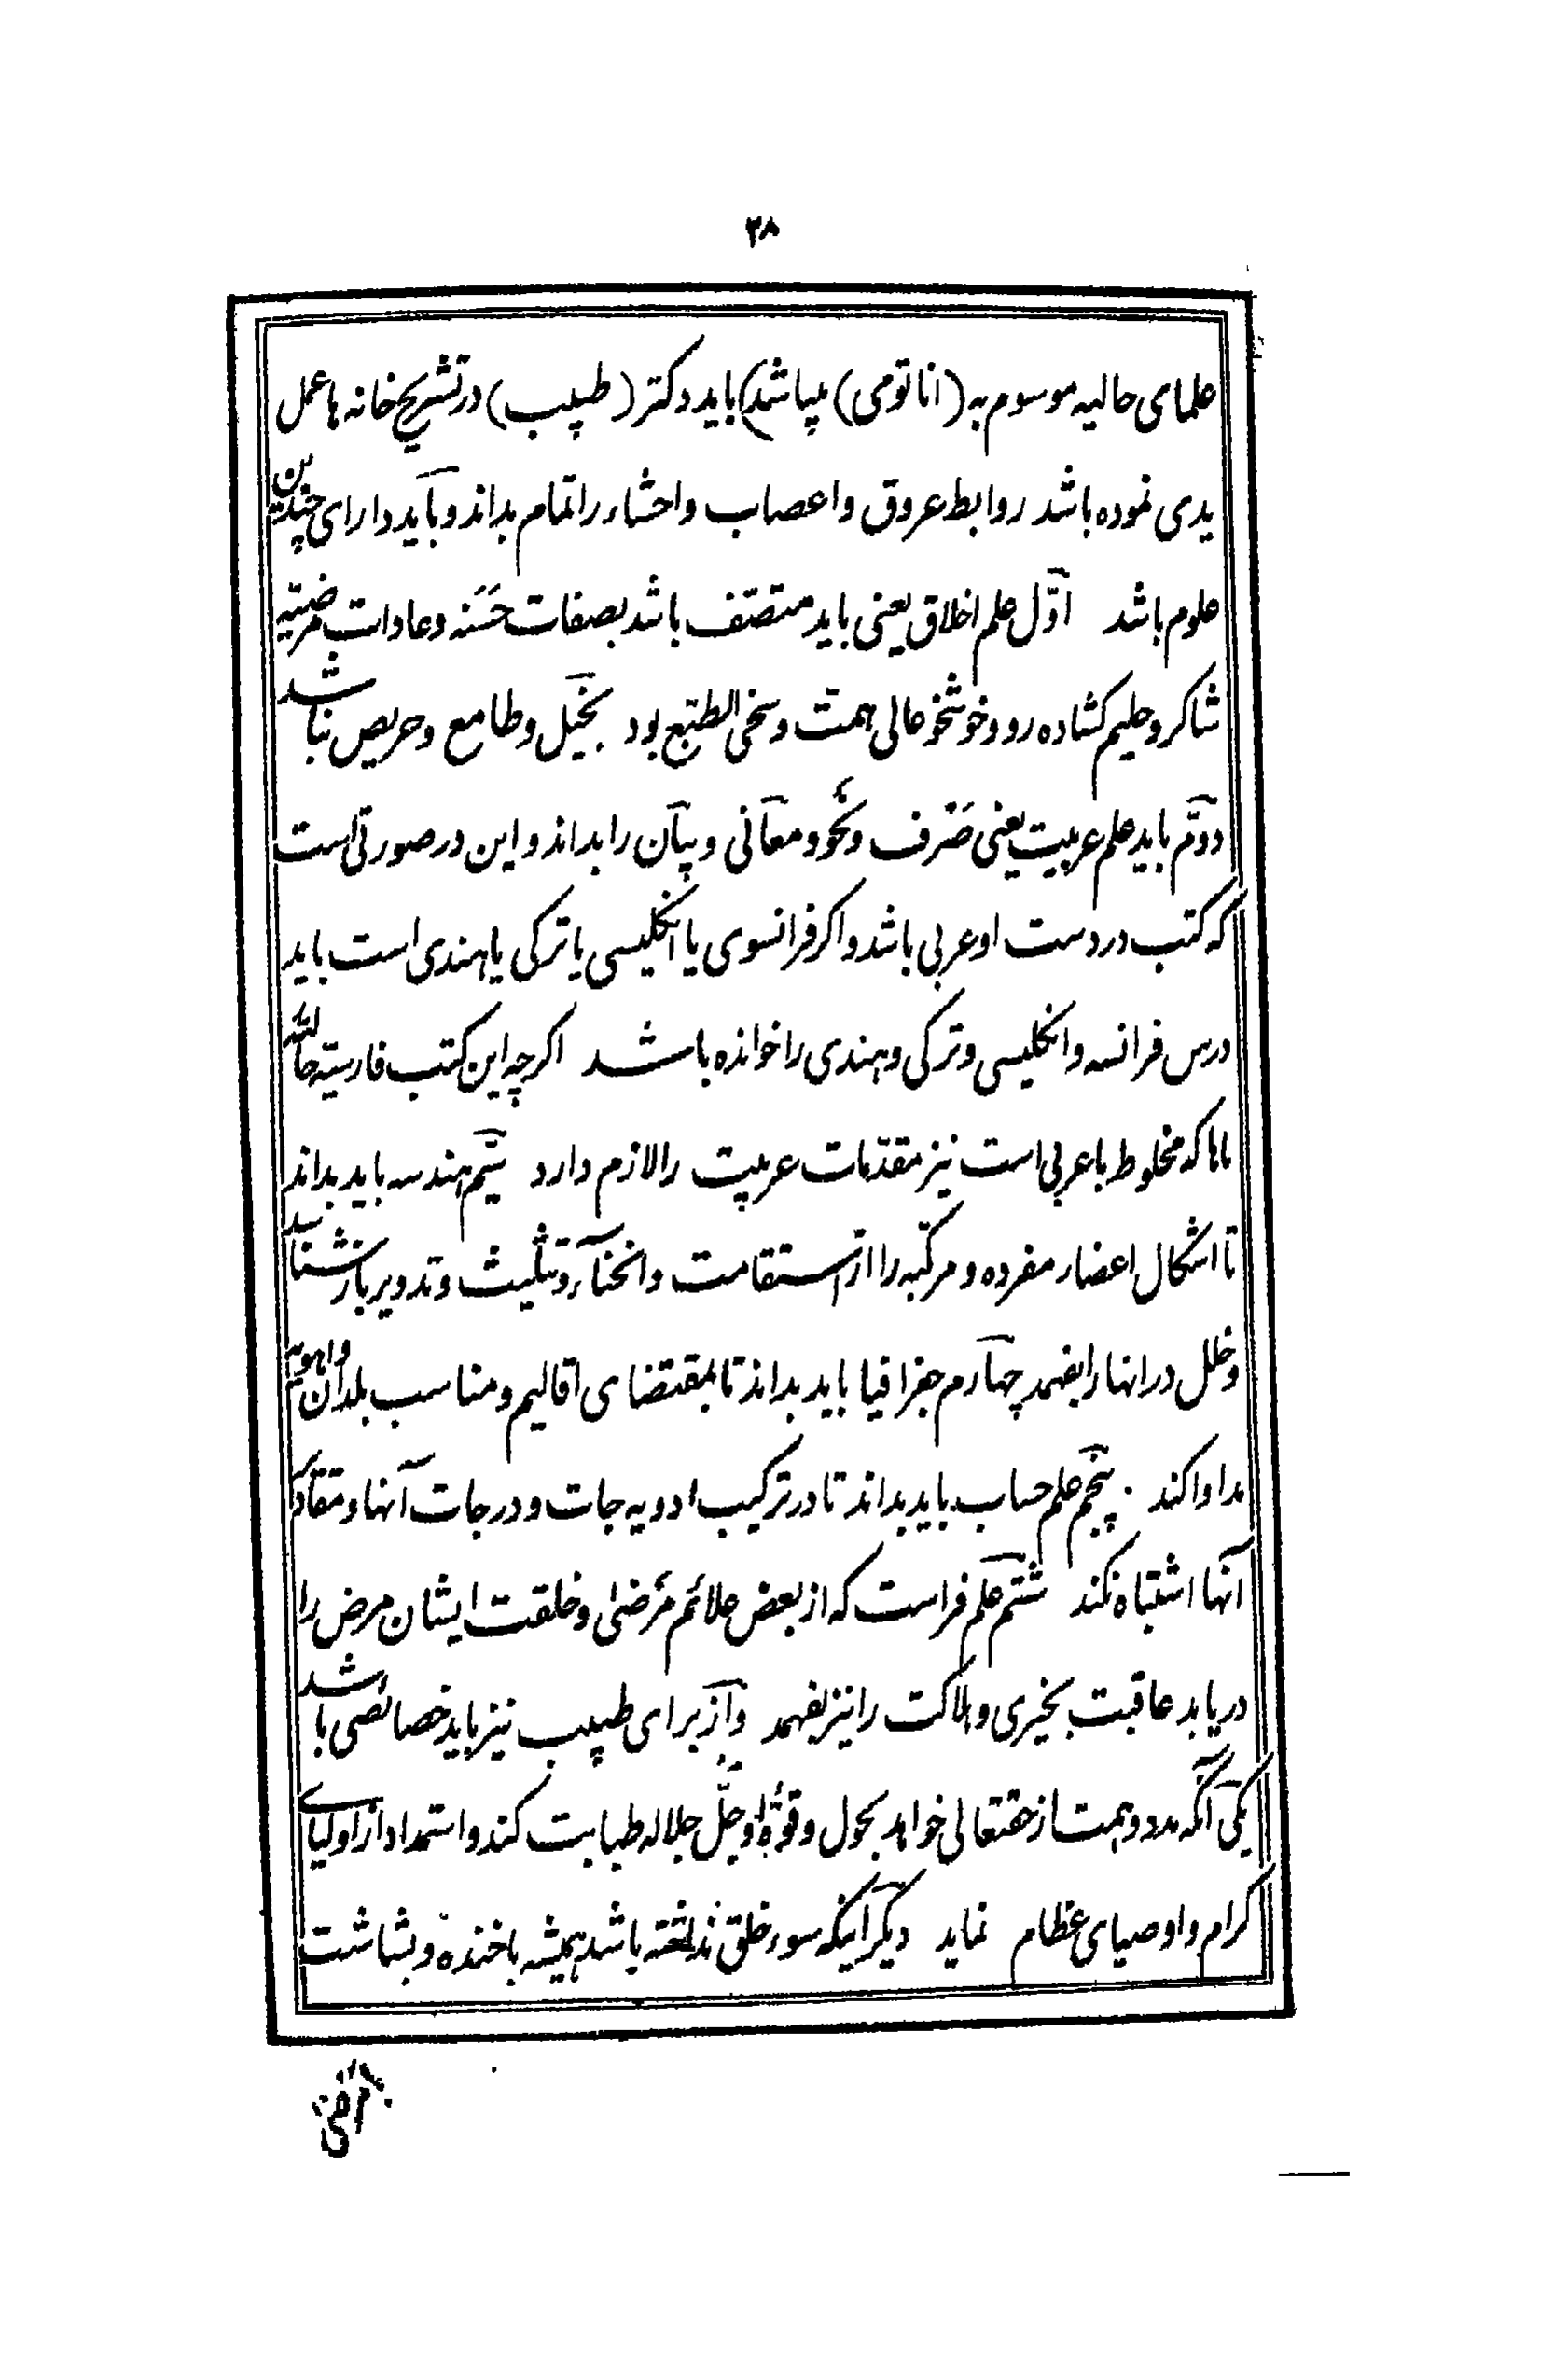 ۲۸
علمای حالیه موسوم به (اناتومی) میباشد) باید دکتر (طبیب) در تشریح خانه ها عمل
یدی نموده باشد روابط عروق و اعصاب و احشاء را تمام بداند و باید دارای چندین
علوم باشد اوّل علم اخلاق یعنی باید متصّف باشد بصفات حَسَنه و عادات مرضیّه
شاکر و حلیم کشاده رو و خوشخو عالی همت و سخی الطّبع بود بخیل و طامع و حریص نباشد
دوّم باید علم عربیت یعنی صَرف و نحو و معانی و بیان را بداند و این در صورتی است
که کتب در دست او عربی باشد و اکر فرانسوی یا انکلیسی یا ترکی یا هندی است باید
درس فرانسه و انکلیسی و ترکی و هندی را خوانده باشد اکرچه این کتب فارسیّه حالیّه
ماها که مخلوط با عربی است نیز مقدّمات عربیت را لازم دارد سیّم هندسه باید بداند
تا اشکال اعضاء مفرده و مرکّبه را از استقامت و انحناء و تثلیث و تدویر باز شناسد
و خلل در انها را بفهمد چهارم جغرافیا باید بداند تا بمقتضای اقالیم و مناسب بلدان و اهویه
مداوا کند . پنجم علم حساب باید بداند تا در ترکیب ادویه جات و درجات آنها و مقادیر
آنها اشتباه نکند ششم علم فراست که از بعض علائم مَرضیٰ و خلقت ایشان مرض را
دریابد عاقبت بخیری و هلاکت را نیز بفهمد و از برای طبیب نیز باید خصائصی باشد
یکی آنکه مدد و همت از حقتعالی خواهد بحول و قوّهٔ او جلّ جلاله طبابت کند و استمداد از اولیای
کرام و اوصیای عظام نماید دیکر اینکه سوء خلق نداشته باشد همیشه با خنده و بشاشت